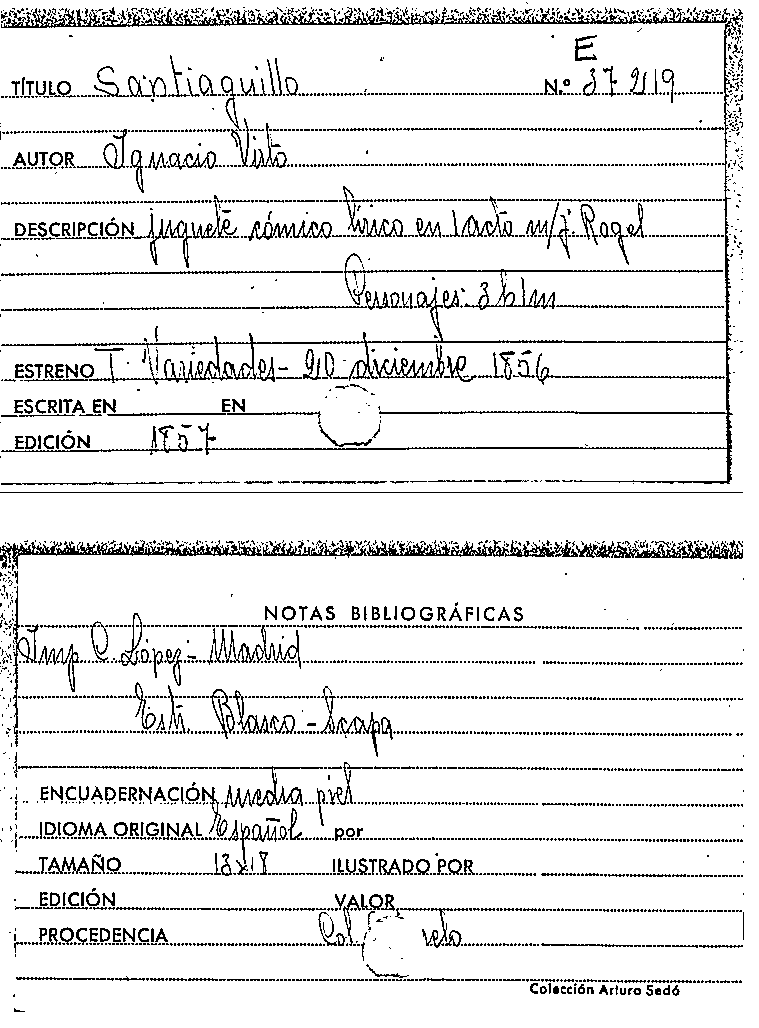 E
TÍTULO Santiaguillo N.º 37 219
AUTOR Ignacio Virto
DESCRIPCIÓN juguete cómico lírico en 1 acto m/ J. Rogel
Personajes: 3 h 1 m
ESTRENO T. Variedades - 20 diciembre 1856
ESCRITA EN EN
EDICIÓN 1857
NOTAS BIBLIOGRÁFICAS
Imp C. López - Madrid
Estr. Blasco - Scapa
ENCUADERNACIÓN media piel
IDIOMA ORIGINAL Español por
TAMAÑO 13x18 ILUSTRADO POR
EDICIÓN VALOR
PROCEDENCIA Col
Colección Arturo Sedó